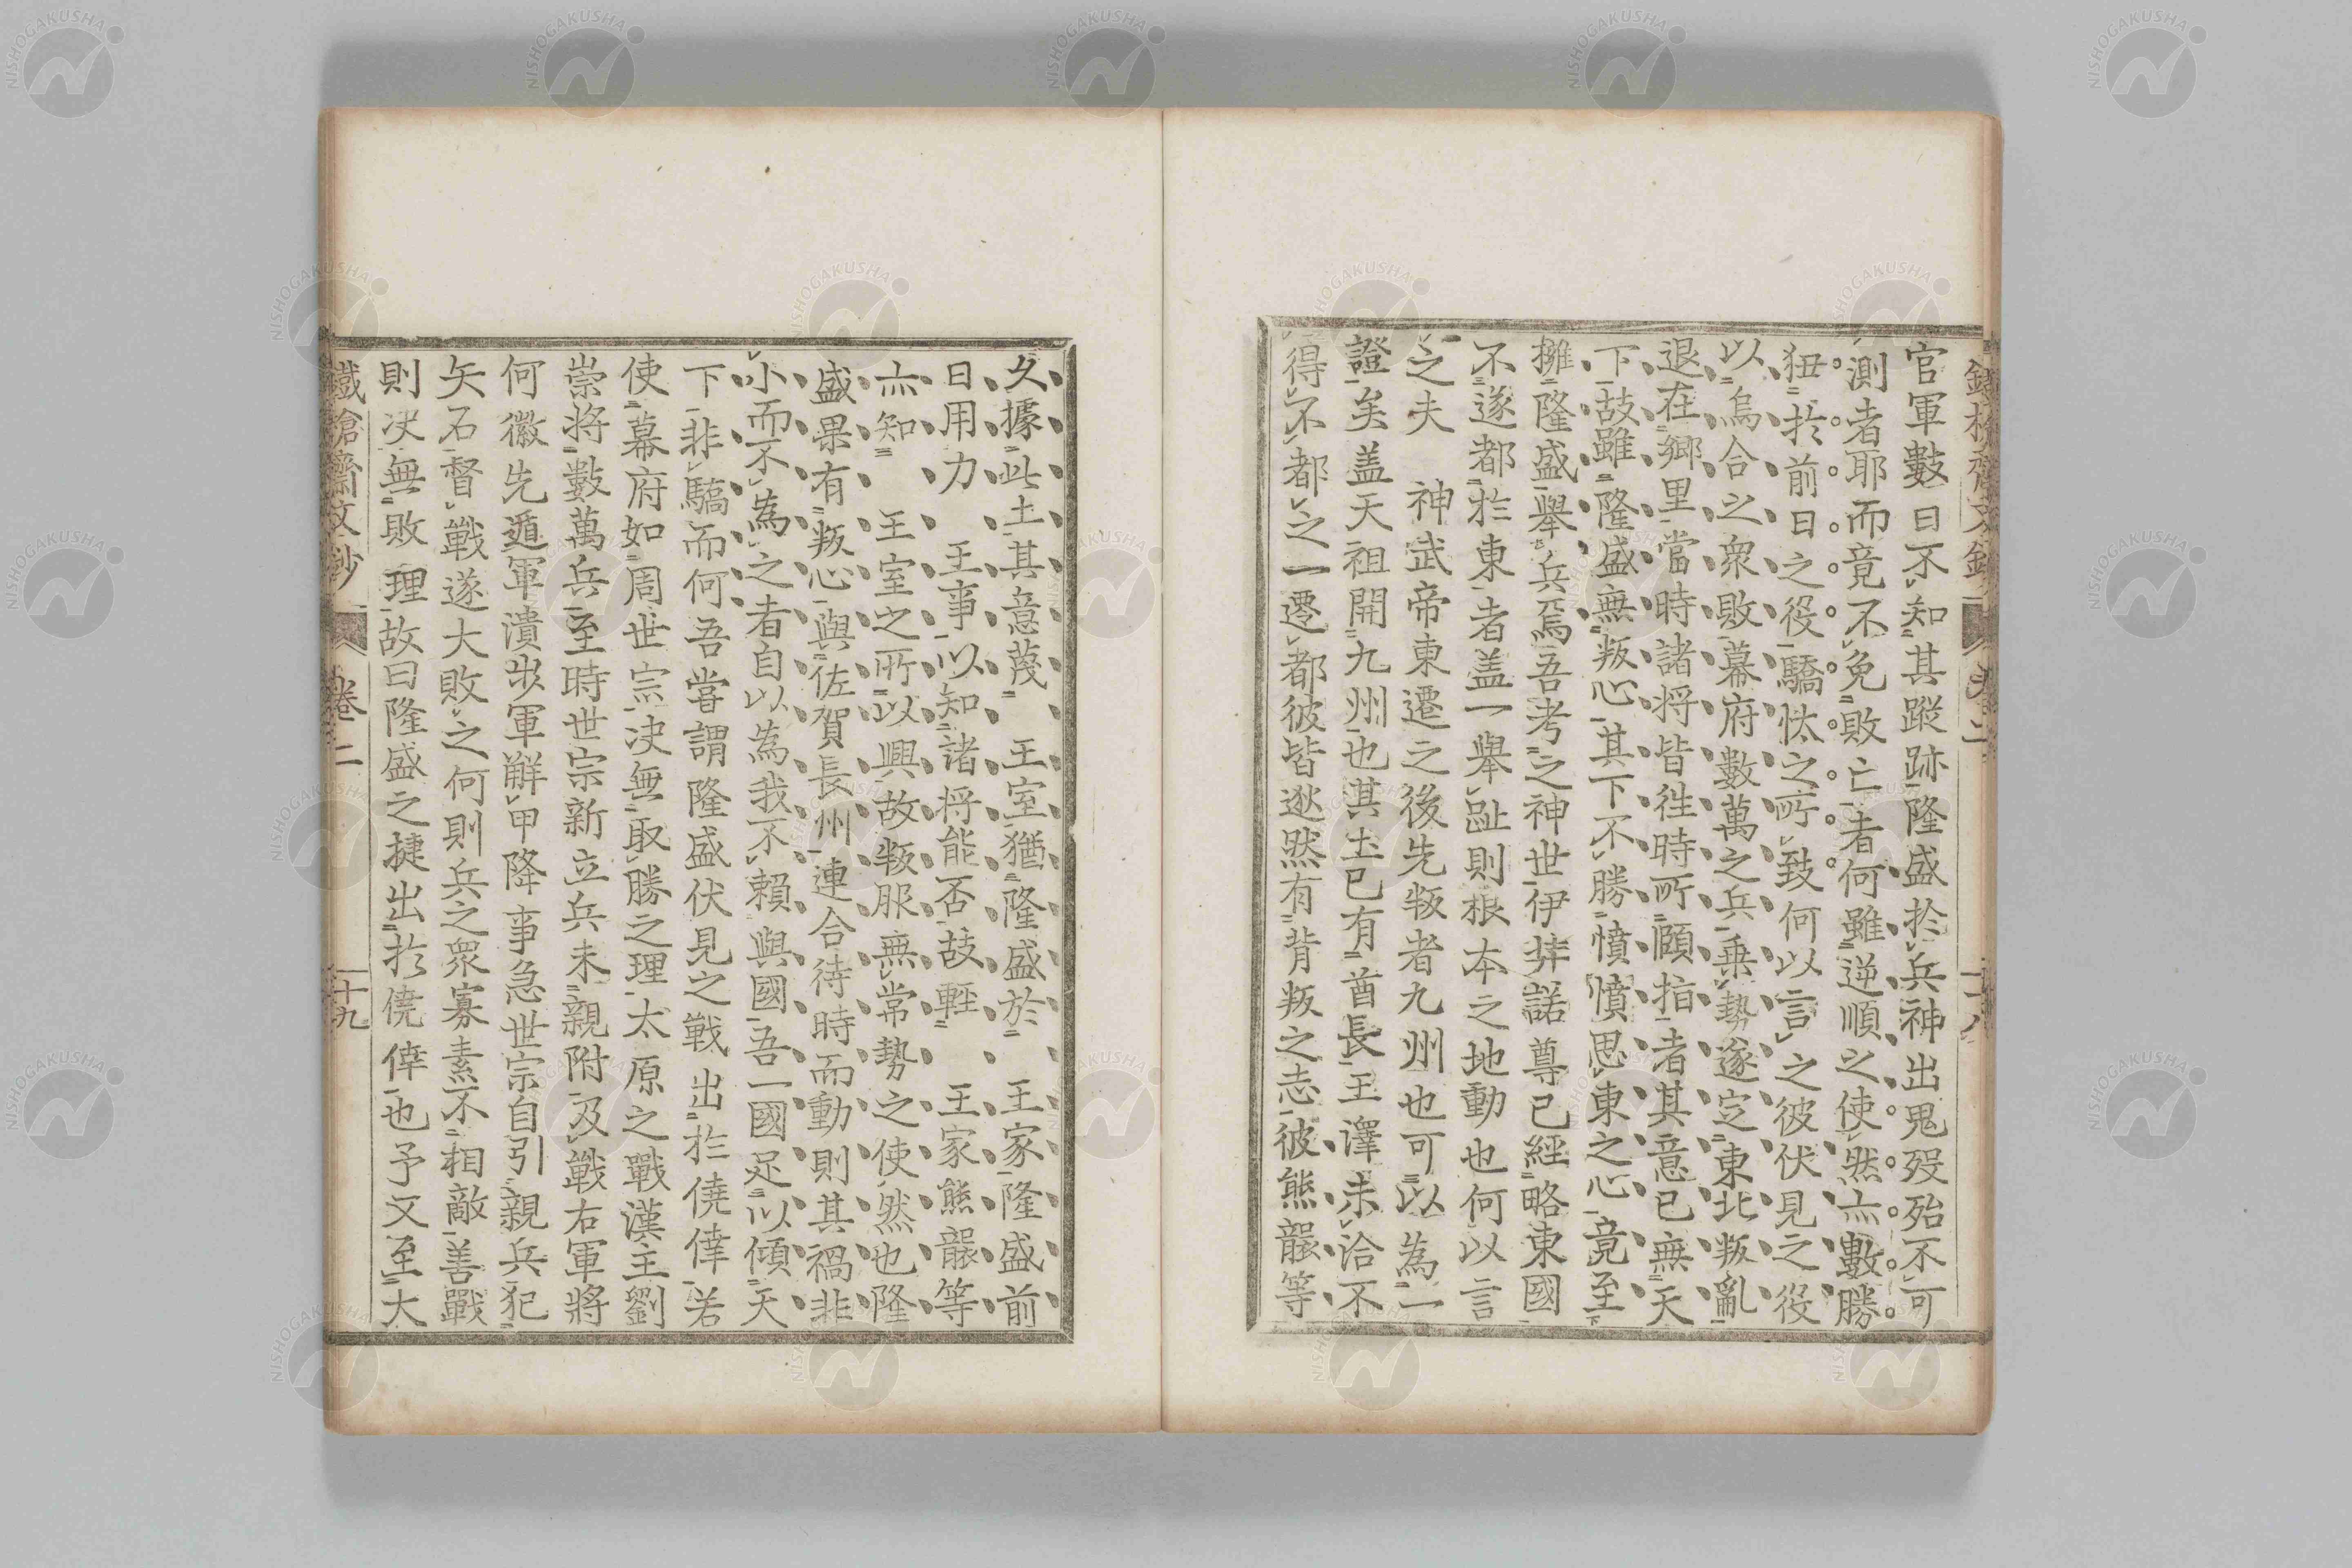 官軍數日不知其蹤跡隆盛於兵神出鬼歿殆不可
測者耶而竟不免敗亡者何雖逆順之使然亦數勝
狃於前日之役驕怢之所致何以言之彼伏見之役
以烏合之衆敗幕府數萬之兵乗勢遂定東北叛亂
退在鄉里當時諸将皆徃時所願指者其意已無天
下故雖隆盛無叛心其下不勝憤憤思東之心竟至
擁隆盛舉兵焉吾考之神世伊弉諾尊己經略東國
不遂都於東者盖一舉趾則根本之地動也何以言
之夫 神武帝東遷之後先叛者九州也可以為一
證矣盖天祖開九州也其土已有酋長王澤未洽不
得不都之一遷都彼皆逖然有背叛之志彼熊襲等
鐵槍齋文鈔 卷二 十八
久據此土其意蔑 王室猶隆盛於 王家隆盛前
日用力 王事以知諸将能否故輕 王家熊襲等
亦知 王室之所以興故叛服無常勢之使然也隆
盛果有叛心與佐賀長州連合待時而動則其禍非
小而不為之者自以為我不賴與國吾一國足以傾天
下非驕而何吾嘗謂隆盛伏見之戰出於僥倖若
使幕府如周世宗决無取勝之理太原之戰漢主劉
崇将數萬兵至時世宗新立兵未親附及戰右軍將
何徽先遁軍潰步軍解甲降事急世宗自引親兵犯
矢石督戰遂大敗之何則兵之衆寡素不相敵善戰
則决無敗理故曰隆盛之捷出於僥倖也予又至大
鐵槍齋文鈔 卷二 十九
NISHOGAKUSHA